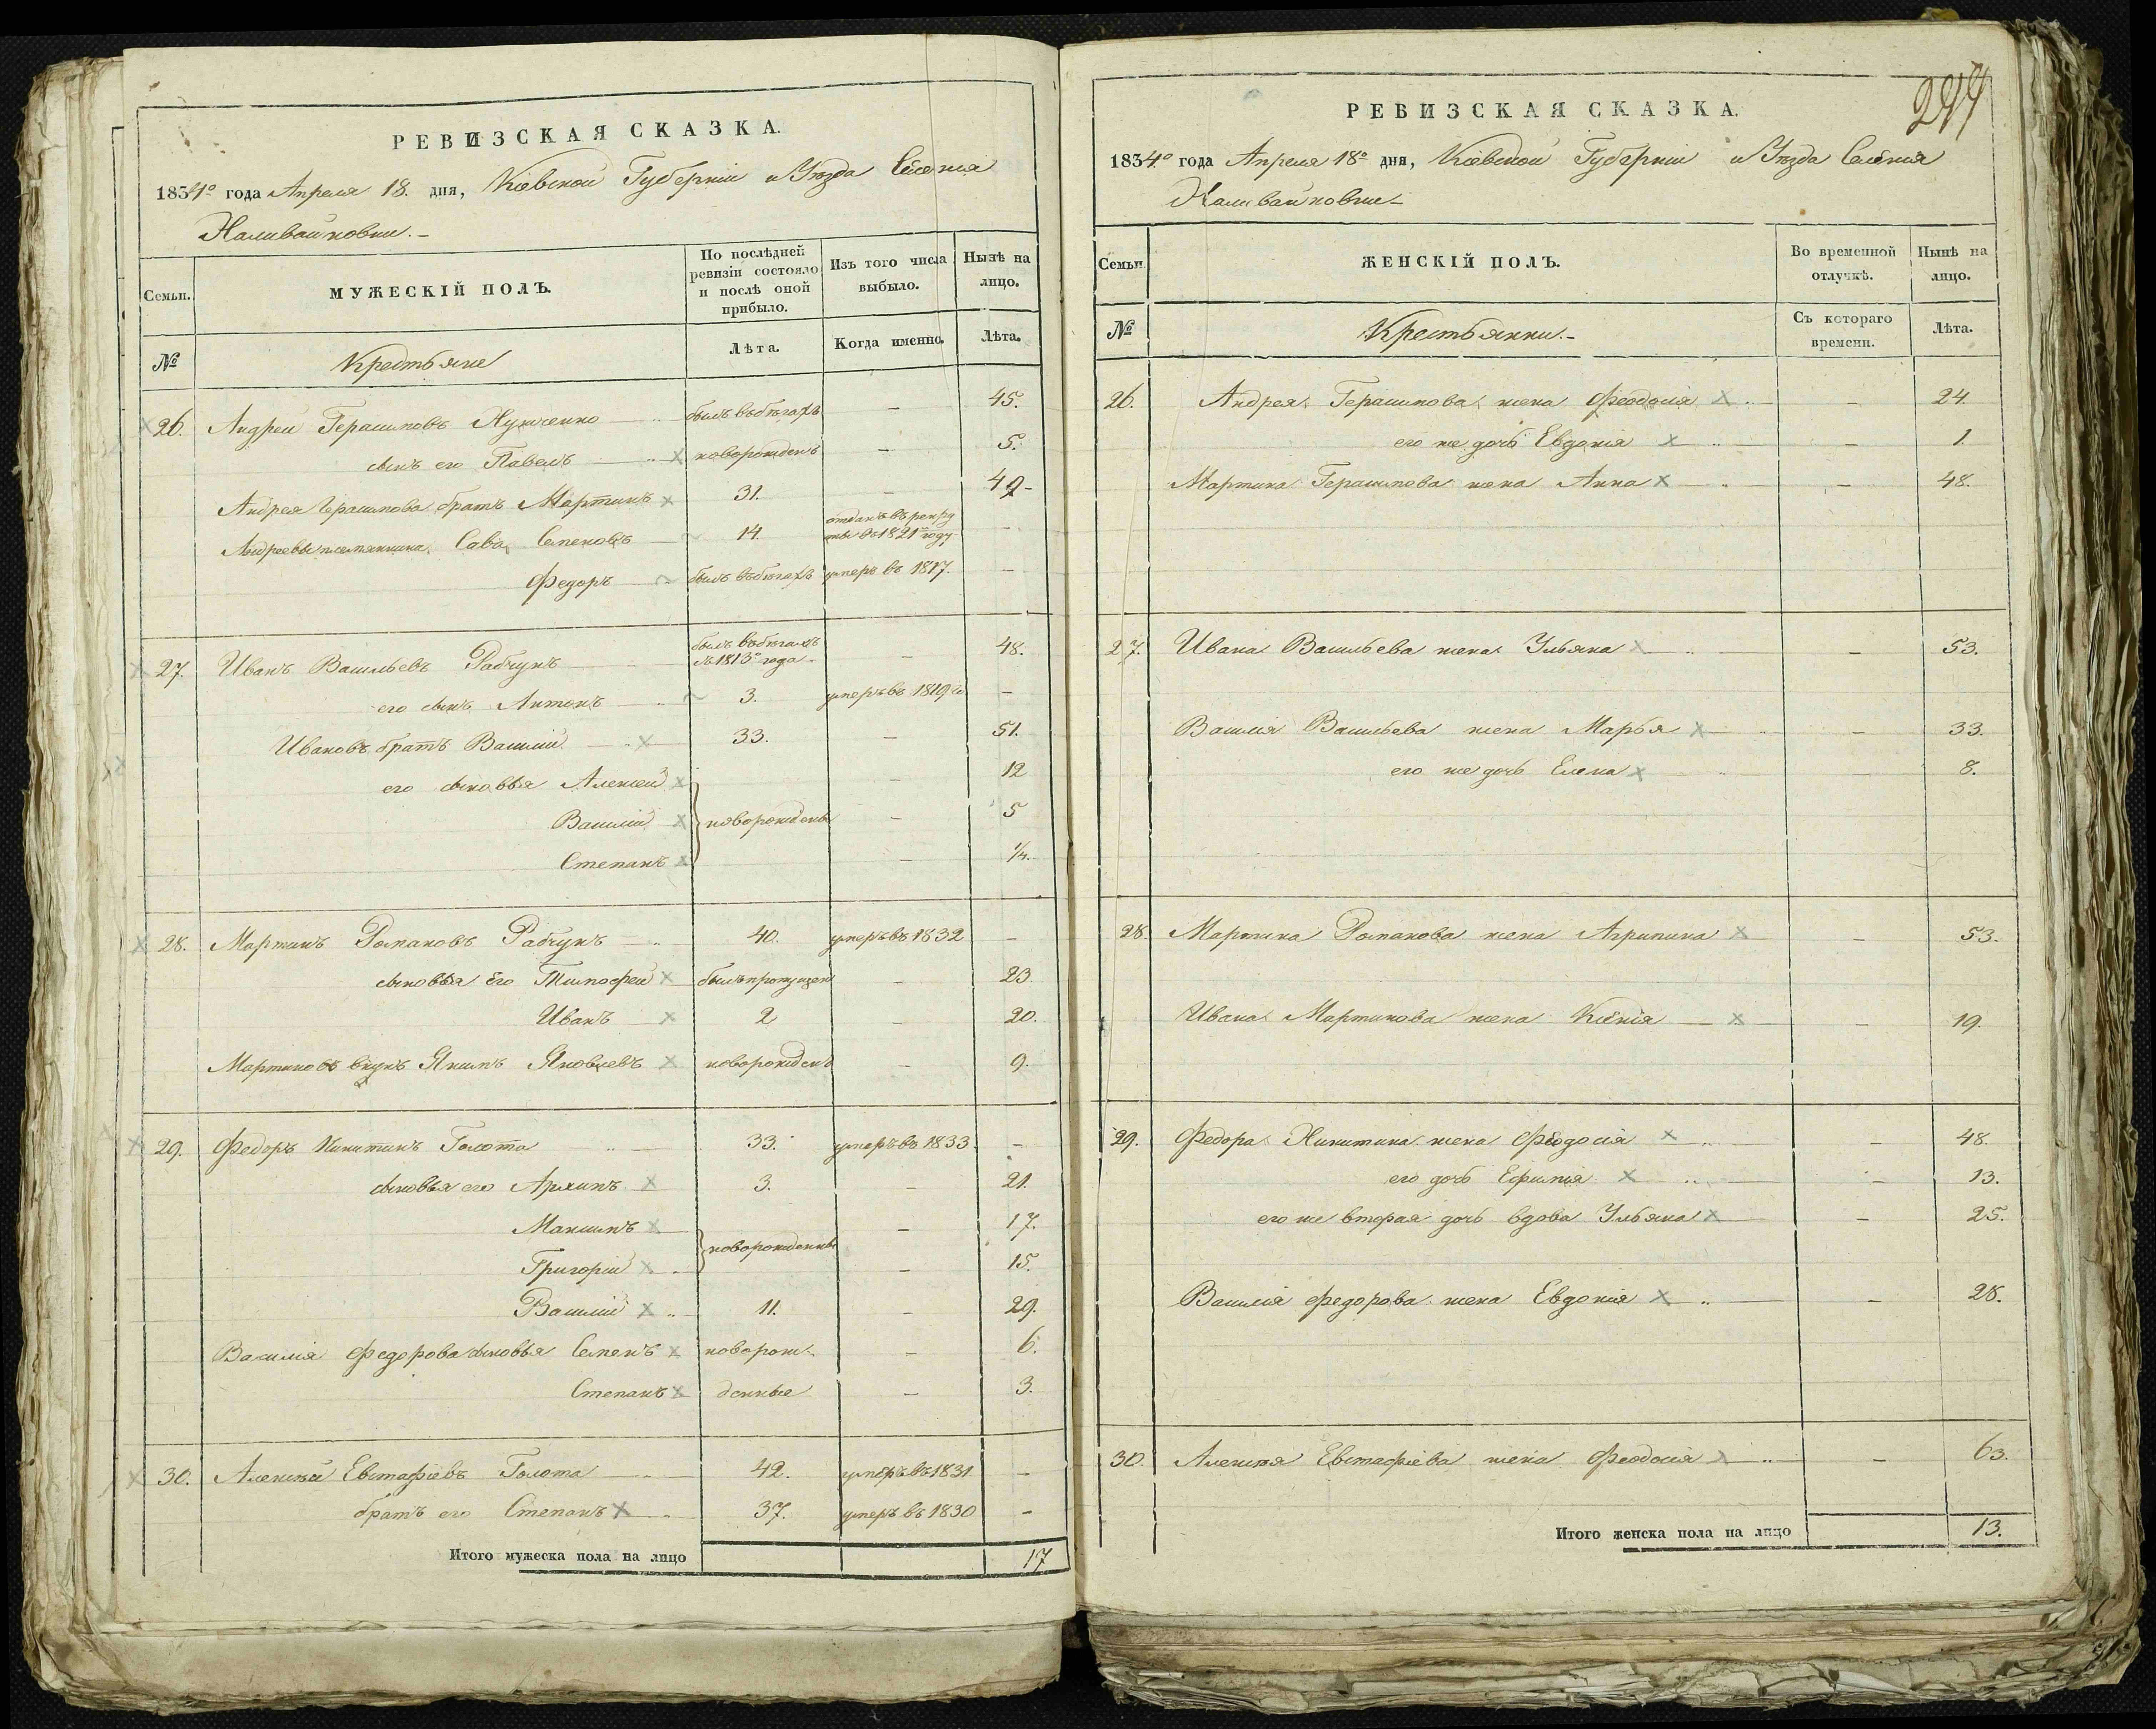 РЕВИЗСКАЯ СКАЗКА.
1834го года Апреля 18. дня, Кіевской Губерніи и Уѣзда Селенія
Наливайковки.-
Семьи.
МУЖЕСКІЙ ПОЛЪ.
По послѣдней ревизіи состояло и послѣ оной прибыло.
Изъ того числа выбыло.
Нынѣ на лицо.
№
Крестьяне
Лѣта.
Когда именно.
Лѣта.
26. Андрей Герасимовъ былъ въ бѣгахъ - 45.
сынъ его Павелъ новорожденъ - 5.
Андрея Герасимова братъ Мартинъ 31. - 49-
Андреевы племянники Сава Семеновъ 14. отданъ въ рекрути въ 1821 году -
Федоръ былъ въ бѣгахъ умеръ въ 1817. -
27. Иванъ Васильевъ Рабчунъ былъ въ бѣгахъ съ 1813го года - 48.
его сынъ Антонъ 3. умеръ въ 1819 -
Ивановъ братъ Василій 33. - 51.
его сыновья Алексей - 12
Василій новорожденны - 5
Степанъ - 1/4.
28. Мартинъ Романовъ Рабчунъ 40. умеръ въ 1832 -
сыновья его Тимофей былъ пропущен - 23
Иванъ 2 - 20.
Мартиновъ внукъ Якимъ Яковлевъ новорожденъ - 9.
29. Федоръ Никитинъ Голота 33. умеръ въ 1833. -
сыновья его Архипъ 3. - 21.
Максимъ - 17.
новорожденны
Григорій - 15.
Василій 11. - 29.
Василія Федорова сыновья Семенъ новорож- - 6.
Степанъ денные - 3.
30. Алексѣй Евстафіевъ Голота 42. умеръ въ 1831 -
братъ его Степанъ 37. умеръ въ 1830 -
Итого мужеска пола на лицо 17
РЕВИЗСКАЯ СКАЗКА.
1834го года Апреля 18го дня, Кіевской Губерніи и Уѣзда Селенія
Наливайковки-
Семьи.
ЖЕНСКІЙ ПОЛЪ.
Во временной отлучкѣ.
Нынѣ на лицо.
№
Крестьянки.-
Съ котораго времени.
Лѣта.
26. Андрея Герасимова жена Феодосія - 24.
его же дочь Евдокія - 1.
Мартина Герасимова жена Анна - 48.
27. Ивана Васильева жена Ульяна - 53.
Василія Васильева жена Марья - 33.
его же дочь Елена - 8.
28. Мартина Романова жена Агрипина - 53.
Ивана Мартинова жена Ксенія - 19.
29. Федора Никитина жена Феодосія - 48.
его дочь Ефимія - 13.
его же вторая дочь вдова Ульяна - 25.
Василія Федорова жена Евдокія - 28.
30. Алексѣя Евстафіева жена Феодосія - 63.
Итого женска пола на лицо 13.